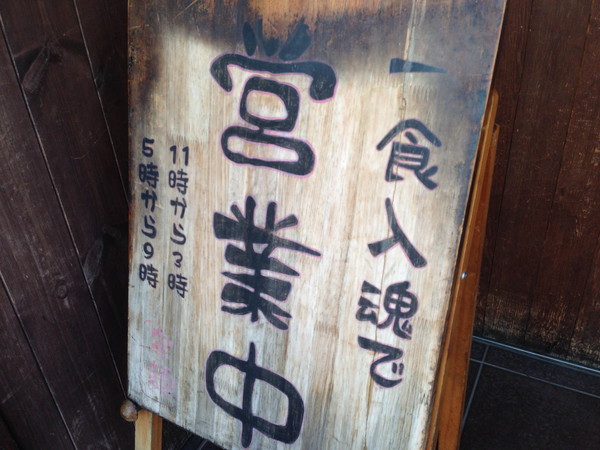 一食入魂で
営業中
11時から3時
5時から9時